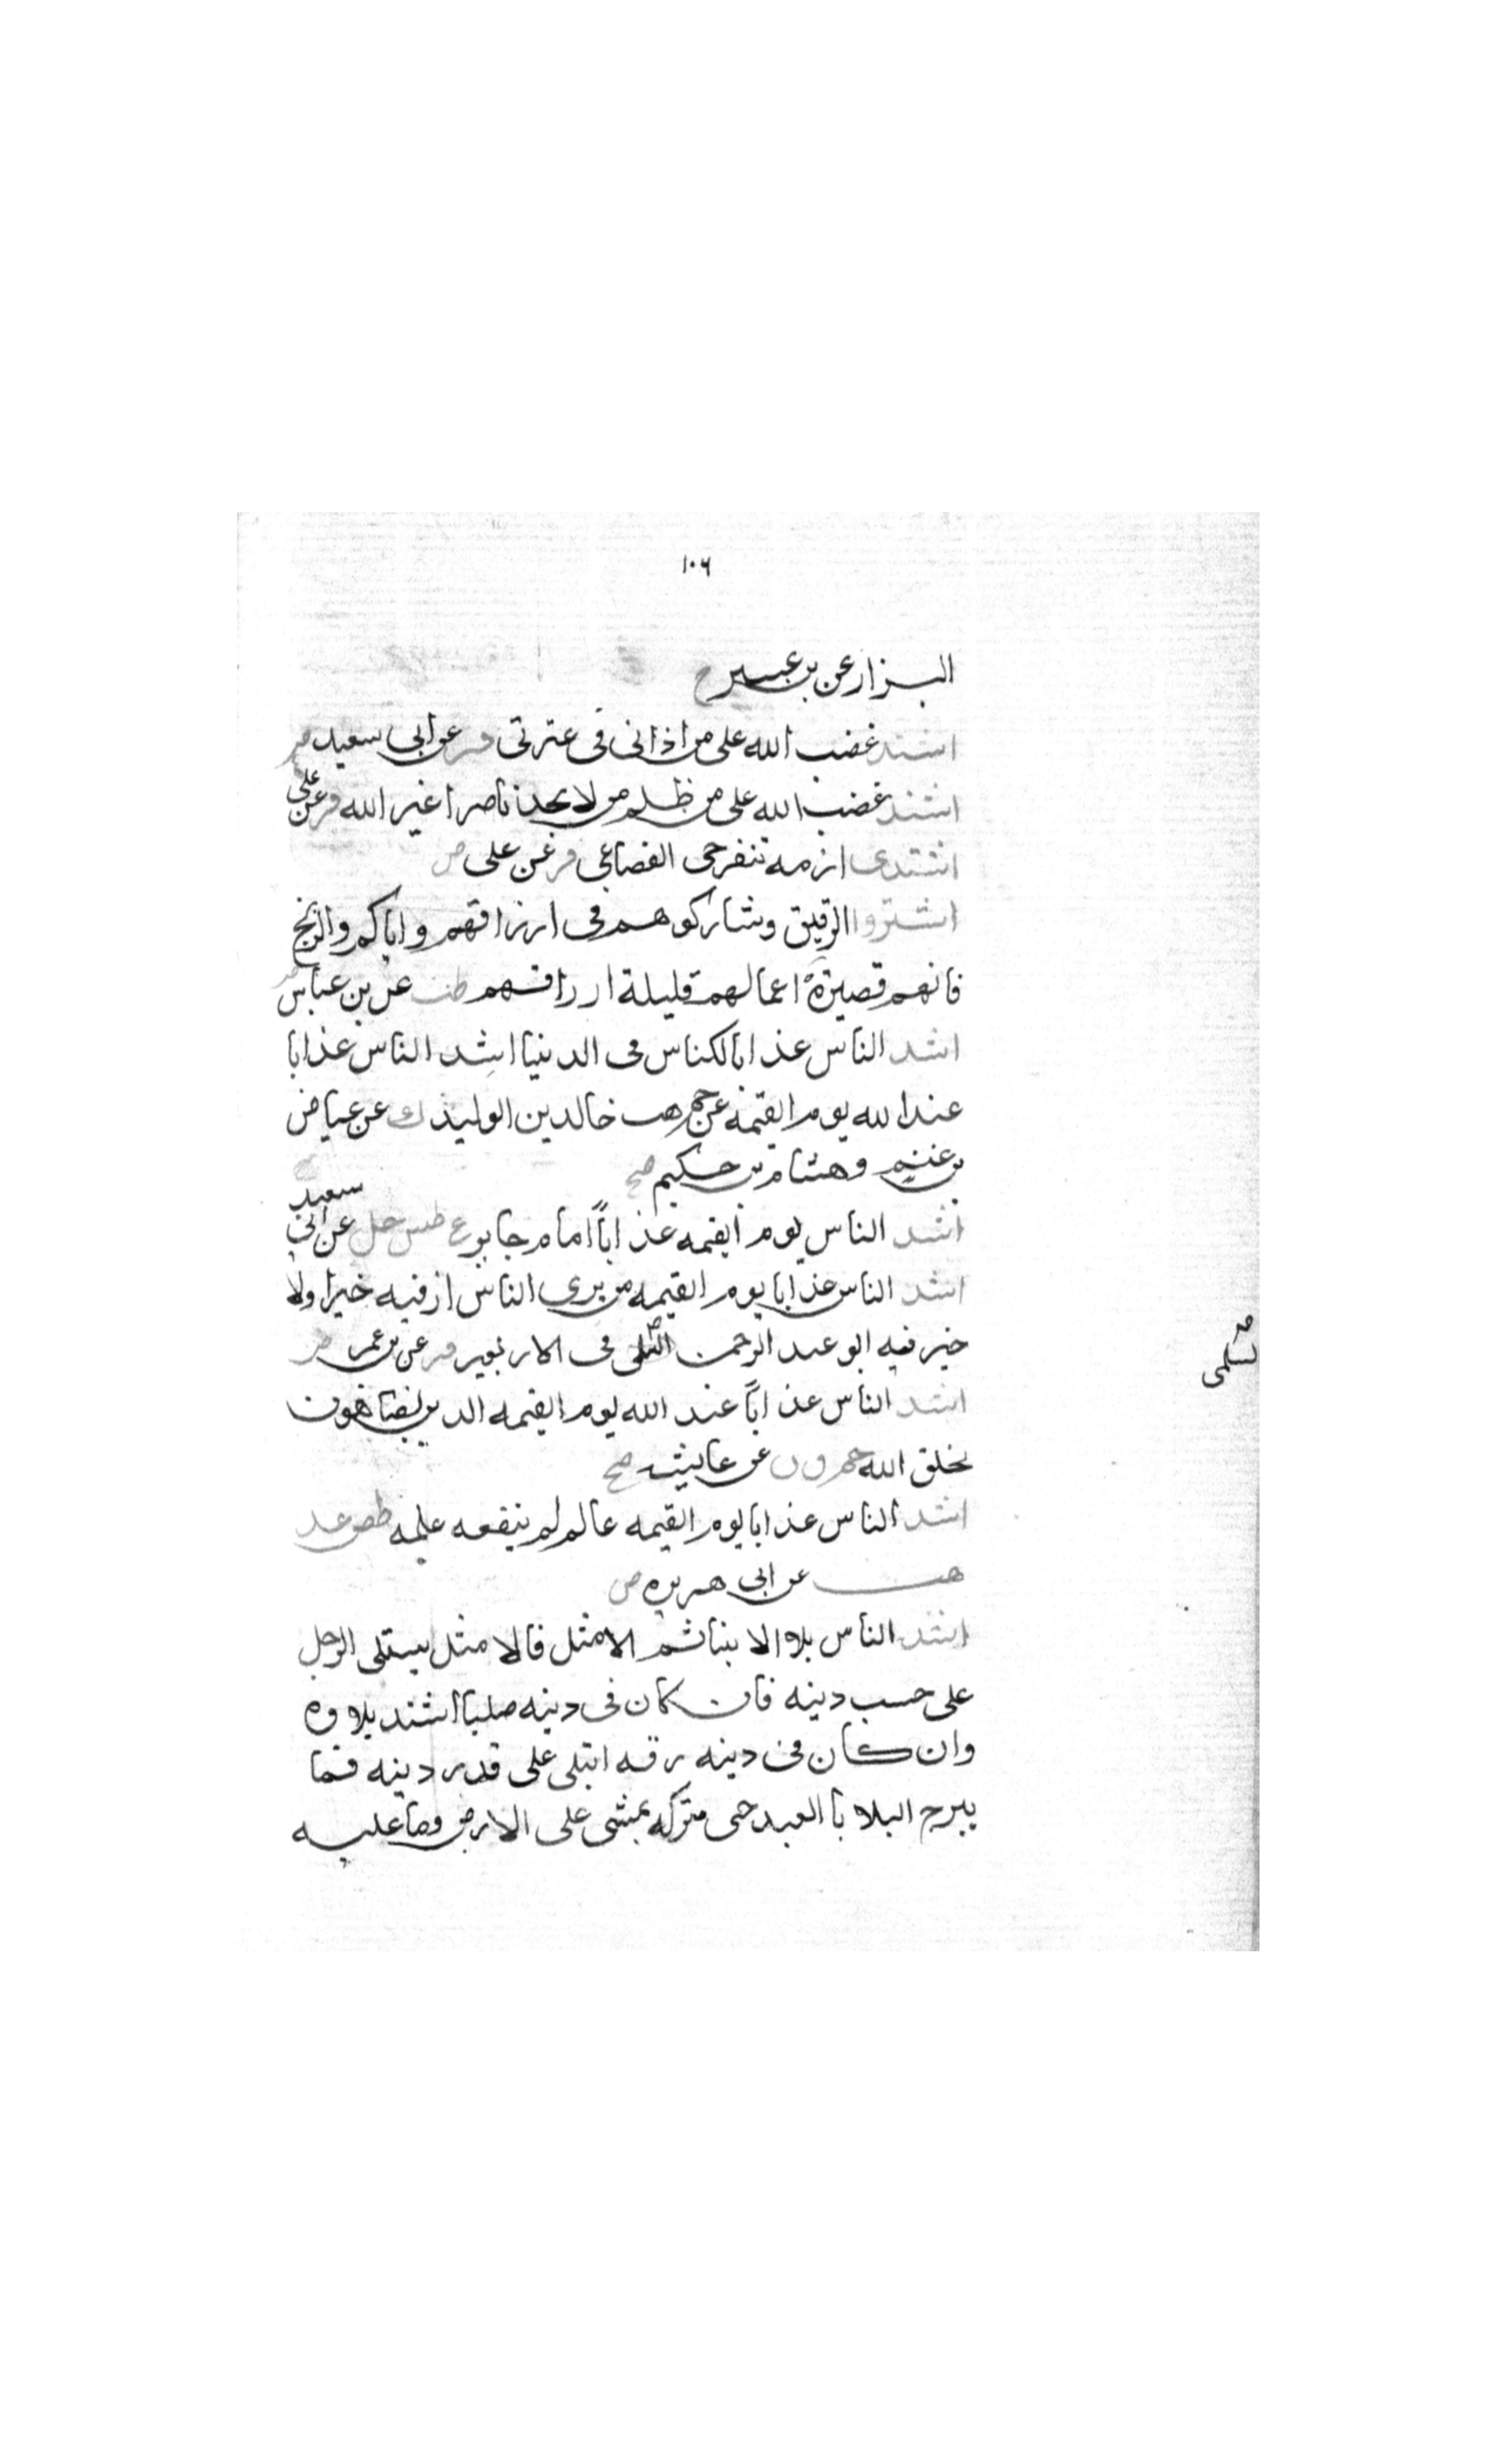 ١٠٦
البزار عن بن عمير ح
اشتد غضب الله على من اذانى فى عترتى فر عن ابى سعيد ض
اشتد غضب الله على من ظلم من لا يجد ناصرا غير الله فر عن على
اشتدى ازمه تنفرجى القضاعى فر عن على ض
اشتروا الرقيق وشاركوهم فى ارزاقهم واياكم والزنج
فانهم قصيرة اعمالهم قليلة ارزاقهم طب عن بن عباس
اشد الناس عذابا لكناس فى الدنيا اشد الناس عذابا
عند الله يوم القيمه عن حم هب خالد بن الوليد ك عن عياض
بن غنيم وهشام بن حكيم صح
اشد الناس يوم القيمه عذاباً امام جاير ع طس حل عن ابى سعيد
اشد الناس عذابا يوم القيمه من يرى الناس ان فيه خيرا ولا
خير فيه ابو عبد الرحمن فى الاربعين فر عن بن عمر ض
السلمى
اشد الناس عذاباً عند الله يوم القيمه الدين يضاهون
بخلق الله حم ق ن عن عايشه صح
اشد الناس عذابا يوم القيمه عالم لم ينفعه علمه طص عد
هب عن ابى هريره ض
اشد الناس بلا الا نبيا ثم الامثل فالا مثل يبتلى الرجل
على حسب دينه فان كان فى دينه صلبا اشتد بلاوه
وان كان فى دينه رقه ابتلى على قدر دينه فما
يبرح البلا با العبد حى متركه يمشى على الارض وما عليه